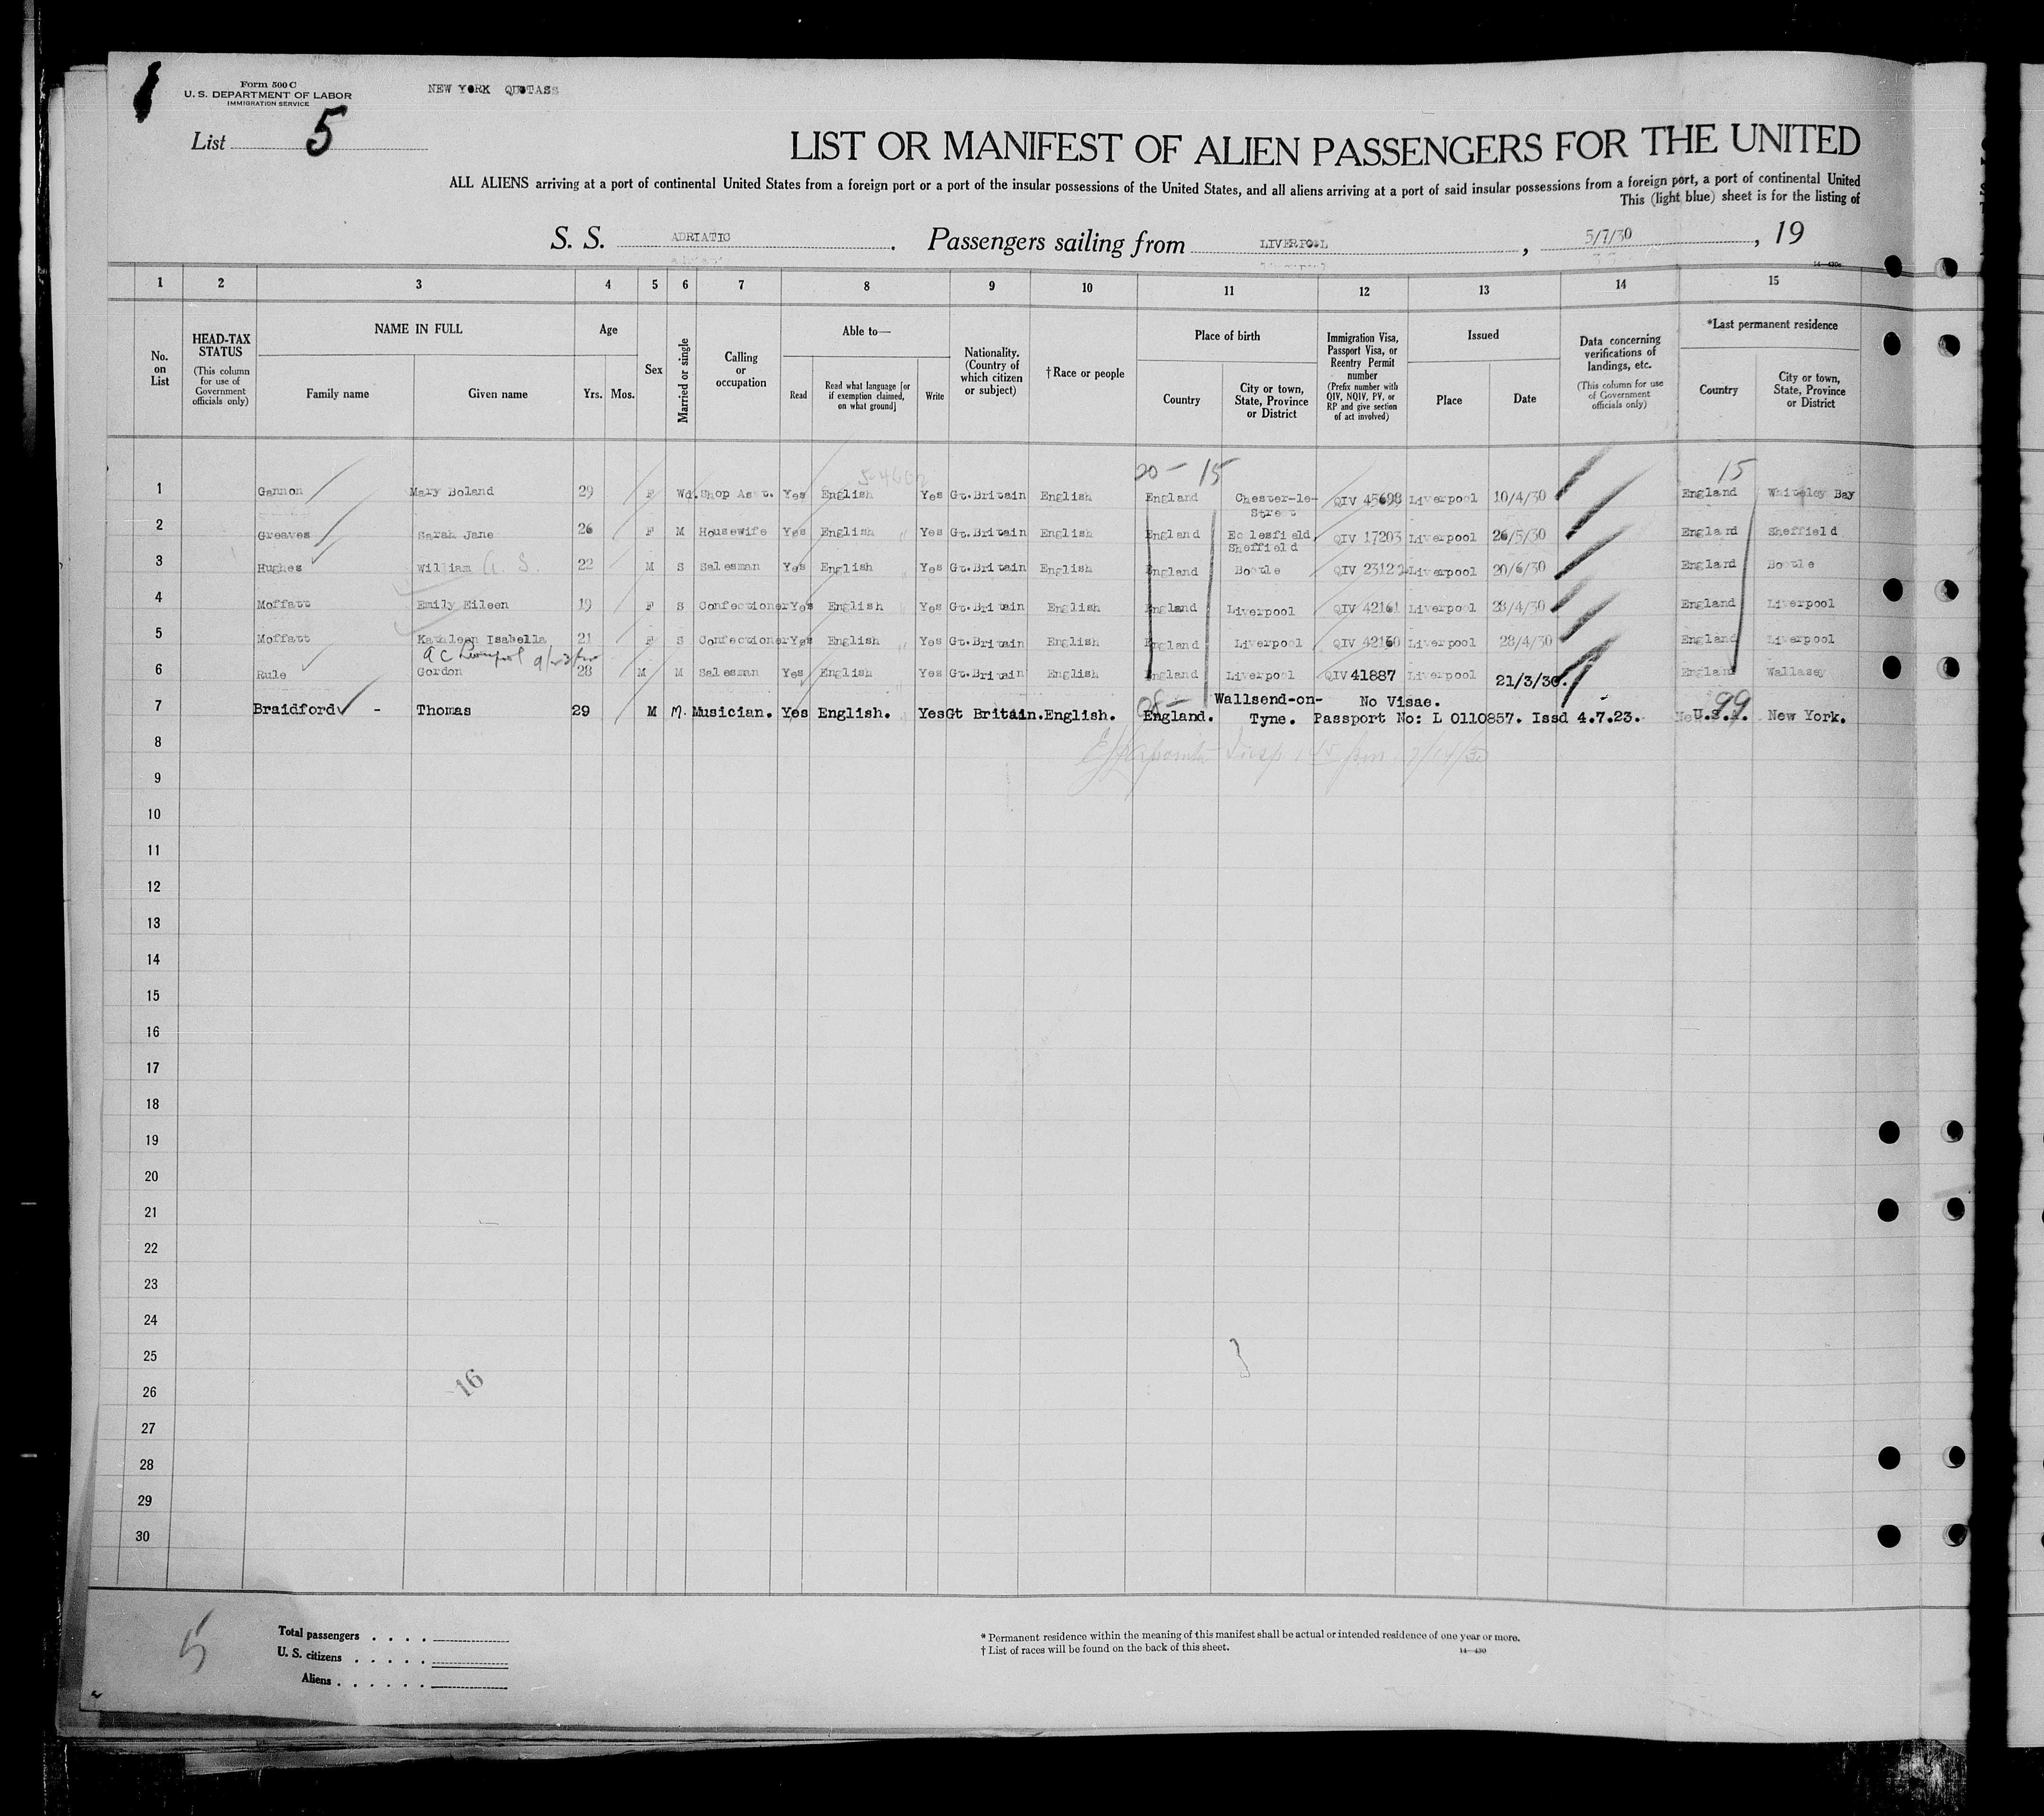 Form 500 C
U. S. DEPARTMENT OF LABOR
IMMIGRATION SERVICE
NEW YORK QUOTASS
List 5
LIST OR MANIFEST OF ALIEN PASSENGERS FOR THE UNITED
ALL ALIENS arriving at a port of continental United States from a foreign port or a port of the insular possessions of the United States, and all aliens arriving at a port of said insular possessions from a foreign port, a port of continental United
This (light blue) sheet is for the listing of
S. S. ADRIATIC. Passengers sailing from LIVERPOOL, 5/7/30, 19
14—430c
1 2 3 4 5 6 7 8 9 10 11 12 13 14 15
No. on List
HEAD-TAX STATUS (This column for use of Government officials only)
NAME IN FULL
Family name Given name
Age
Yrs. Mos.
Sex
Married or single
Calling or occupation
Able to—
Read Read what language [or if exemption claimed, on what ground] Write
Nationality. (Country of which citizen or subject)
† Race or people
Place of birth
Country City or town, State, Province or District
Immigration Visa, Passport Visa, or Reentry Permit number (Prefix number with QIV, NQIV, PV, or RP and give section of act involved)
Issued
Place Date
Data concerning verifications of landings, etc. (This column for use of Government officials only)
*Last permanent residence
Country City or town, State, Province or District
20 — 15 15
1 Gannon Mary Boland 29 F Wd. Shop Asst. Yes English Yes Gt.Britain English England Chester-le-Street QIV 45698 Liverpool 10/4/30 England Whiteley Bay
2 Greaves Sarah Jane 26 F M Housewife Yes English Yes Gt.Britain English England Ecclesfield Sheffield QIV 17203 Liverpool 26/5/30 England Sheffield
3 Hughes William G. S. 22 M S Salesman Yes English Yes Gt.Britain English England Bootle QIV 23122 Liverpool 20/6/30 England Bootle
4 Moffatt Emily Eileen 19 F S Confectioner Yes English Yes Gt.Britain English England Liverpool QIV 42161 Liverpool 28/4/30 England Liverpool
5 Moffatt Kathleen Isabella 21 F S Confectioner Yes English Yes Gt.Britain English England Liverpool QIV 42160 Liverpool 28/4/30 England Liverpool
6 Rule Gordon 28 M M Salesman Yes English Yes Gt.Britain English England Liverpool QIV 41887 Liverpool 21/3/30. England Wallasey
7 Braidford - Thomas 29 M M. Musician. Yes English. Yes Gt Britain. English. England. Wallsend-on-Tyne. No Visae. Passport No: L 0110857. Issd 4.7.23. U.S.A. 99 New York.
8
9
10
11
12
13
14
15
16
17
18
19
20
21
22
23
24
25
26
27
28
29
30
16
5
Total passengers
U. S. citizens
Aliens
* Permanent residence within the meaning of this manifest shall be actual or intended residence of one year or more.
† List of races will be found on the back of this sheet.
14—430